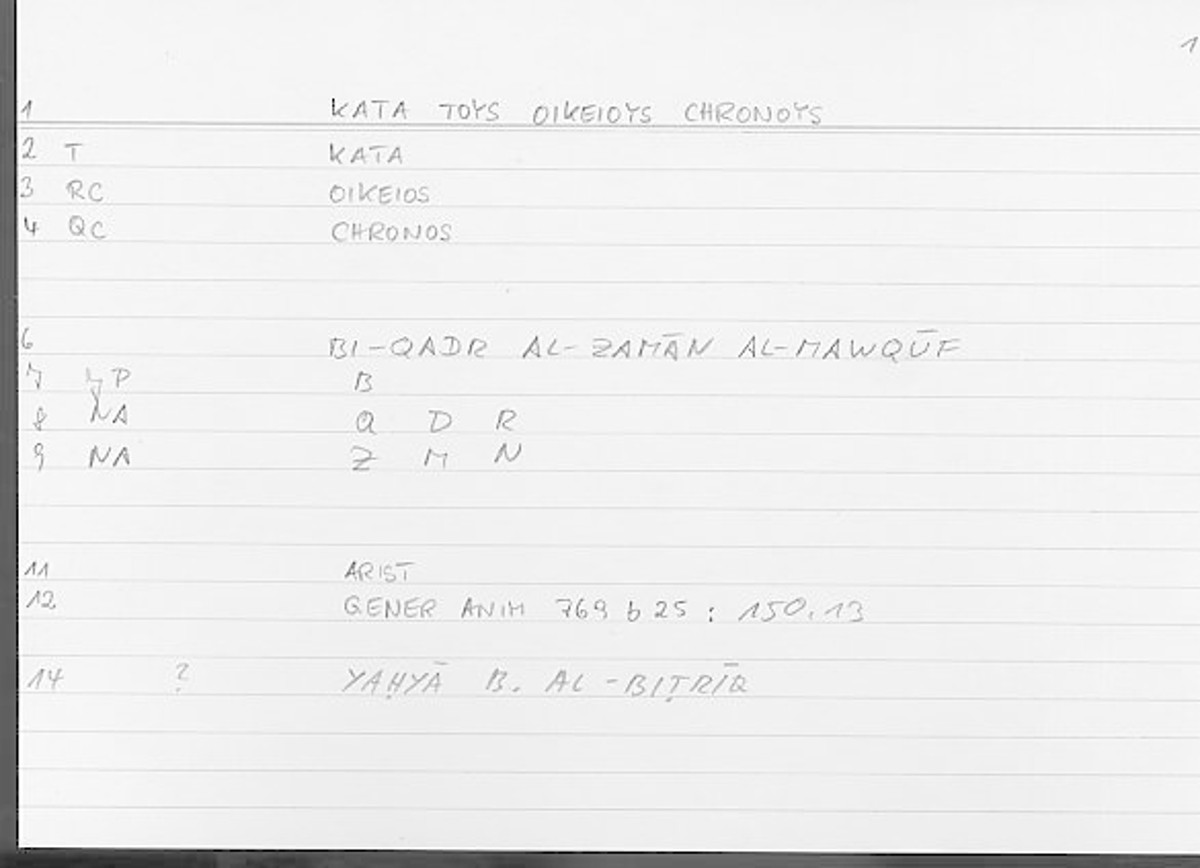 1
1 KATA TOYS OIKEIOYS CHRONOYS
2 T KATA
3 RC OIKEIOS
4 QC CHRONOS
6 BI-QADR AL-ZAMĀN AL-MAWQŪF
7 P B
8 NA Q D R
9 NA Z M N
11 ARIST
12 GENER ANIM 769 b 25 : 150.13
14 ? YAḤYĀ B. AL-BIṬRĪQ